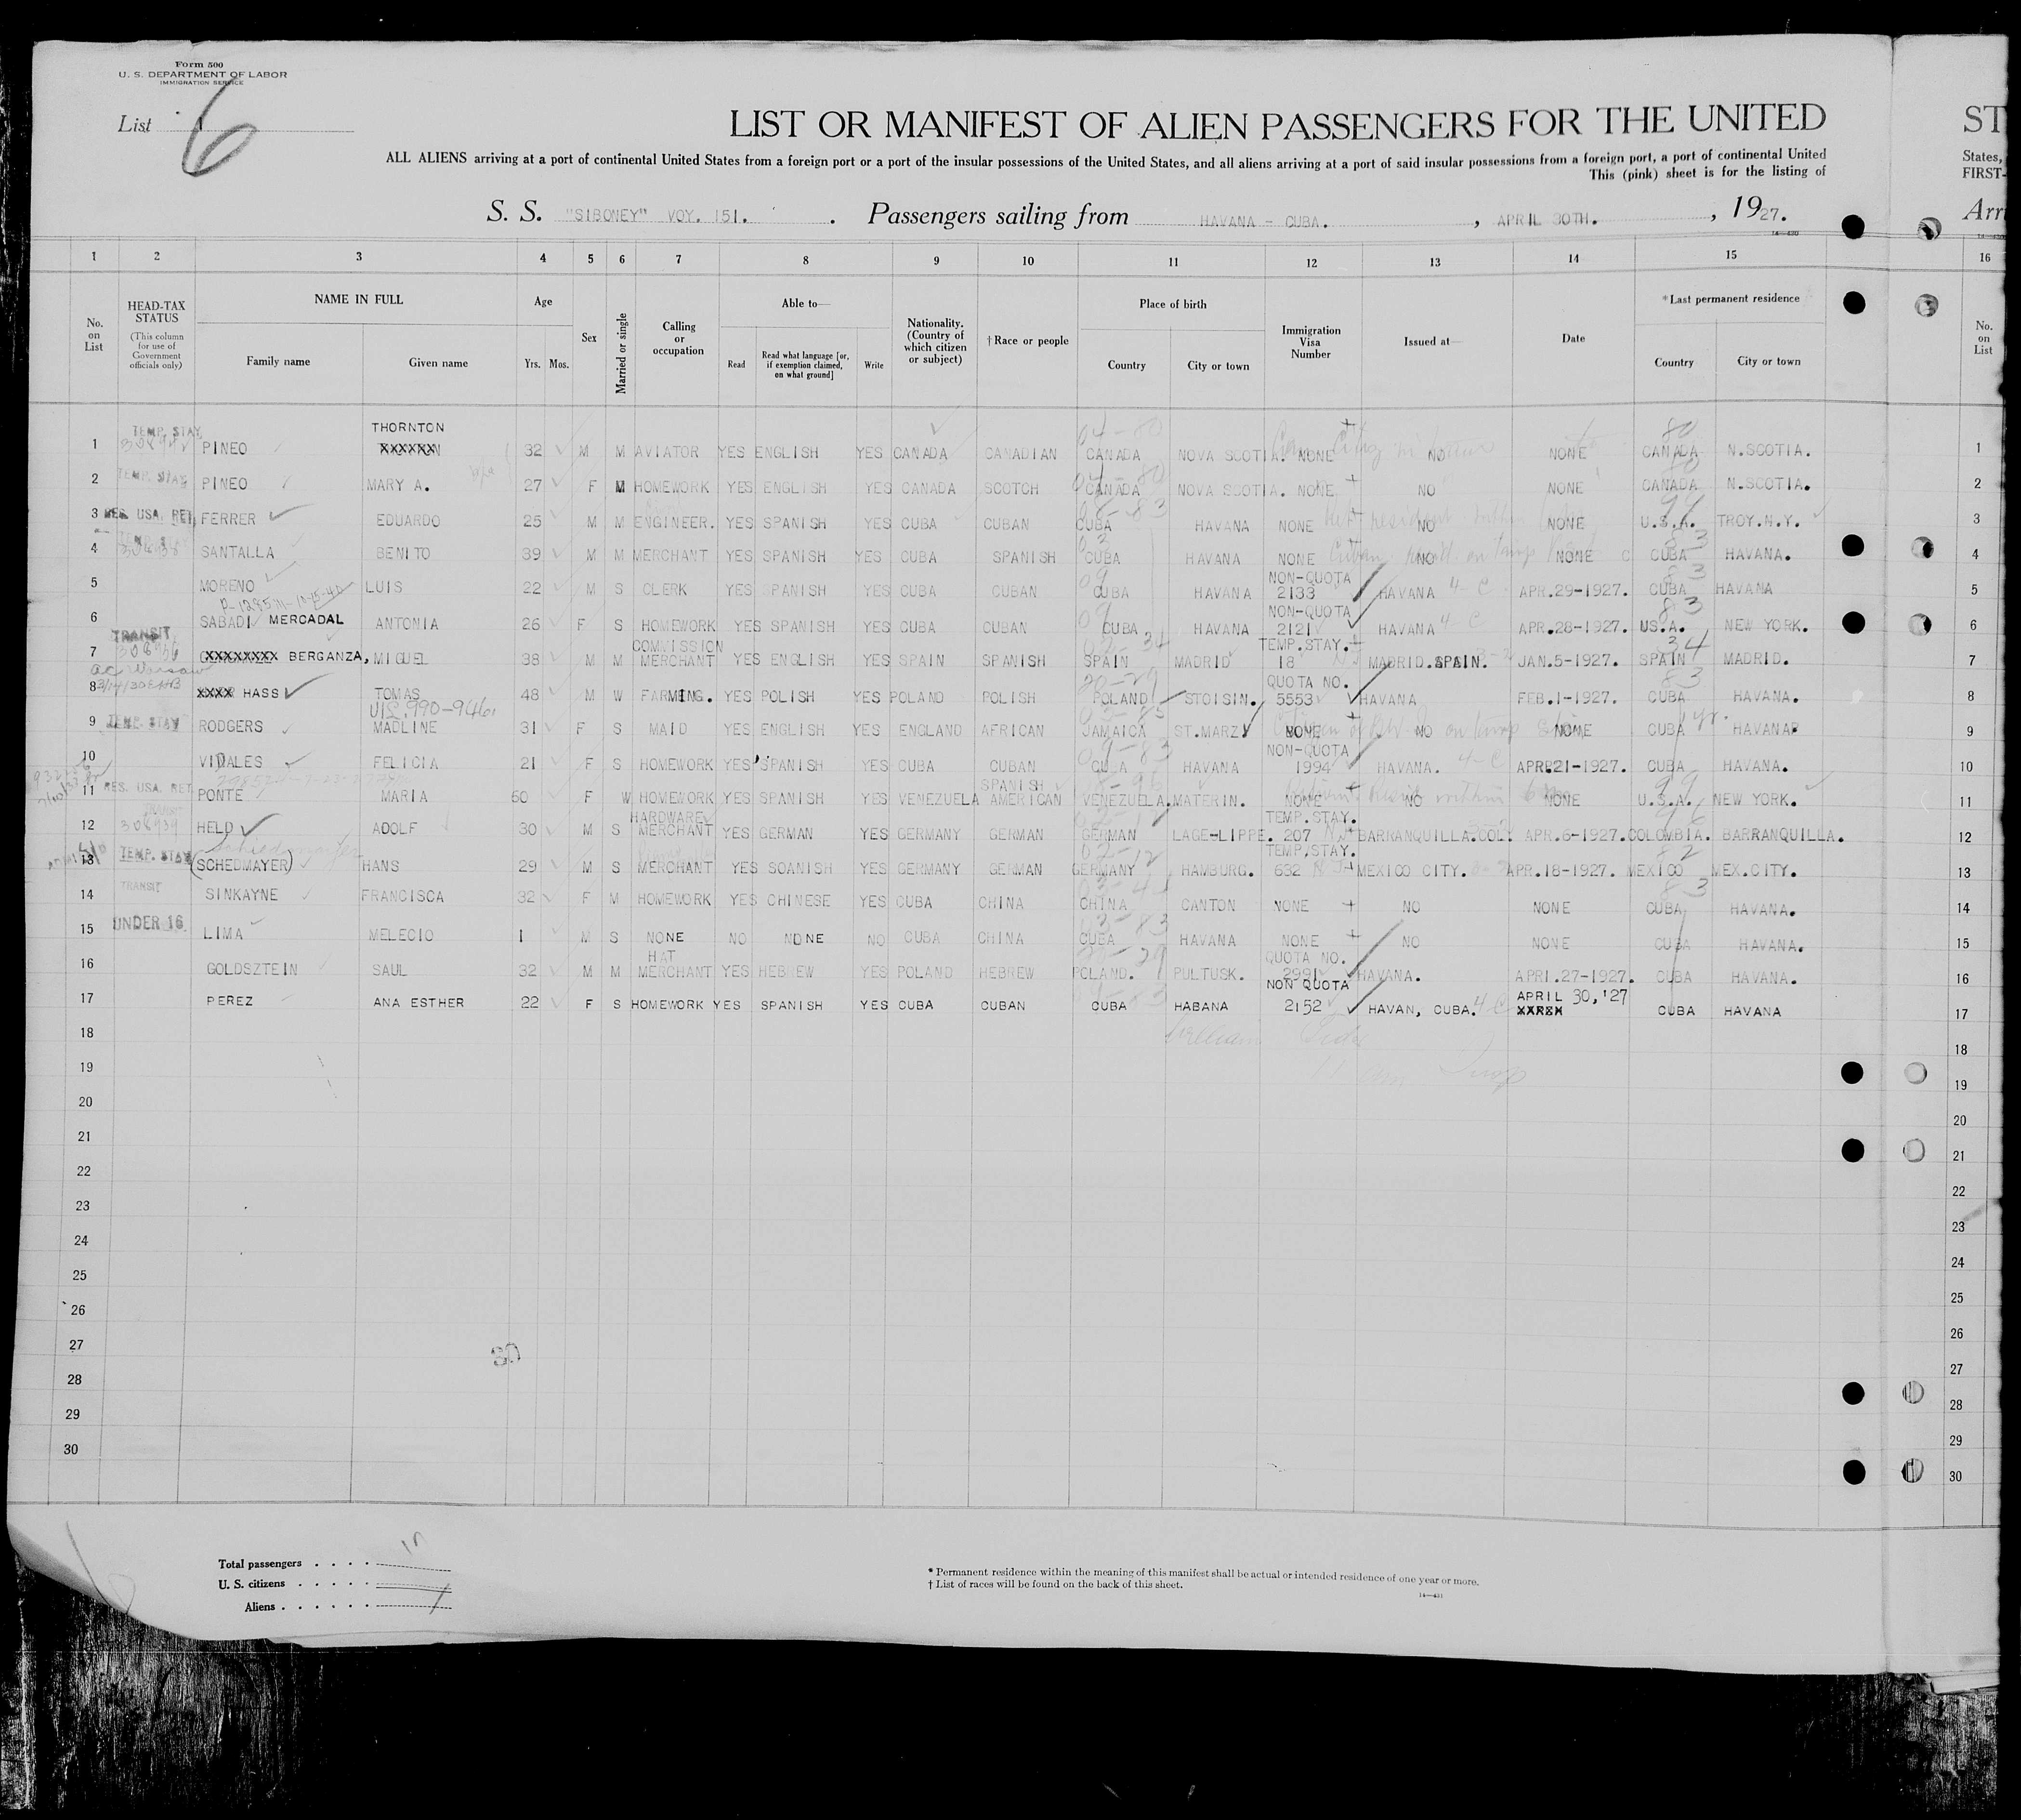 Form 500
U. S. DEPARTMENT OF LABOR
IMMIGRATION SERVICE
List 1
6
LIST OR MANIFEST OF ALIEN PASSENGERS FOR THE UNITED
ST
ALL ALIENS arriving at a port of continental United States from a foreign port or a port of the insular possessions of the United States, and all aliens arriving at a port of said insular possessions from a foreign port, a port of continental United
States,
This (pink) sheet is for the listing of
FIRST-
S. S. "SIBONEY" VOY. 151. . Passengers sailing from HAVANA - CUBA. , APRIL 30TH. , 1927.
Arri
1 2 3 4 5 6 7 8 9 10 11 12 13 14 15 16
No. on List
HEAD-TAX STATUS
(This column for use of Government officials only)
NAME IN FULL
Family name Given name
Age
Yrs. Mos.
Sex
Married or single
Calling or occupation
Able to—
Read
Read what language [or, if exemption claimed, on what ground]
Write
Nationality. (Country of which citizen or subject)
† Race or people
Place of birth
Country City or town
Immigration Visa Number
Issued at—
Date
* Last permanent residence
Country City or town
No. on List
1 TEMP. STAY PINEO THORNTON 32 M M AVIATOR YES ENGLISH YES CANADA CANADIAN CANADA NOVA SCOTIA. NONE NO NONE CANADA N.SCOTIA. 1
2 TEMP. STAY PINEO MARY A. 27 F M HOMEWORK YES ENGLISH YES CANADA SCOTCH CANADA NOVA SCOTIA. NONE NO NONE CANADA N.SCOTIA. 2
3 RES. USA. RET. FERRER EDUARDO 25 M M ENGINEER. YES SPANISH YES CUBA CUBAN CUBA HAVANA NONE NO NONE U.S.A. TROY.N.Y. 3
4 TEMP. STAY SANTALLA BENITO 39 M M MERCHANT YES SPANISH YES CUBA SPANISH CUBA HAVANA NONE NO NONE CUBA HAVANA. 4
5 MORENO LUIS 22 M S CLERK YES SPANISH YES CUBA CUBAN CUBA HAVANA NON-QUOTA 2133 HAVANA 4-C APR.29-1927. CUBA HAVANA 5
6 SABADI MERCADAL ANTONIA 26 F S HOMEWORK YES SPANISH YES CUBA CUBAN CUBA HAVANA NON-QUOTA 2121 HAVANA 4-C APR.28-1927. US.A. NEW YORK. 6
7 TRANSIT BERGANZA, MIGUEL 38 M M COMMISSION MERCHANT YES ENGLISH YES SPAIN SPANISH SPAIN MADRID TEMP.STAY. 18 MADRID.SPAIN. JAN.5-1927. SPAIN MADRID. 7
8 HASS TOMAS 48 M W FARMING. YES POLISH YES POLAND POLISH POLAND STOISIN. QUOTA NO. 5553 HAVANA FEB.1-1927. CUBA HAVANA. 8
9 TEMP. STAY RODGERS MADLINE 31 F S MAID YES ENGLISH YES ENGLAND AFRICAN JAMAICA ST.MARZ NONE NO NONE CUBA HAVANA 9
10 VIDALES FELICIA 21 F S HOMEWORK YES SPANISH YES CUBA CUBAN CUBA HAVANA NON-QUOTA 1994 HAVANA. 4-C APR.21-1927. CUBA HAVANA. 10
11 RES. USA. RET. PONTE MARIA 50 F W HOMEWORK YES SPANISH YES VENEZUELA SPANISH AMERICAN VENEZUELA. MATERIN. NONE NO NONE U.S.A. NEW YORK. 11
12 TRANSIT HELD ADOLF 30 M S HARDWARE MERCHANT YES GERMAN YES GERMANY GERMAN GERMAN LAGE-LIPPE. TEMP.STAY. 207 BARRANQUILLA.COL. APR.6-1927. COLOMBIA. BARRANQUILLA. 12
13 TEMP. STAY (SCHEDMAYER) HANS 29 M S MERCHANT YES SOANISH YES GERMANY GERMAN GERMANY HAMBURG. TEMP.STAY. 632 MEXICO CITY. APR.18-1927. MEXICO MEX.CITY. 13
14 TRANSIT SINKAYNE FRANCISCA 32 F M HOMEWORK YES CHINESE YES CUBA CHINA CHINA CANTON NONE NO NONE CUBA HAVANA. 14
15 UNDER 16 LIMA MELECIO 1 M S NONE NO NONE NO CUBA CHINA CUBA HAVANA NONE NO NONE CUBA HAVANA. 15
16 GOLDSZTEIN SAUL 32 M M HAT MERCHANT YES HEBREW YES POLAND HEBREW POLAND. PULTUSK. QUOTA NO. 2991 HAVANA. APRI.27-1927. CUBA HAVANA. 16
17 PEREZ ANA ESTHER 22 F S HOMEWORK YES SPANISH YES CUBA CUBAN CUBA HABANA NON QUOTA 2152 HAVAN, CUBA. 4-C APRIL 30,'27 CUBA HAVANA 17
18 18
19 19
20 20
21 21
22 22
23 23
24 24
25 25
26 26
27 27
28 28
29 29
30 30
Total passengers . . . .
U. S. citizens . . . . .
Aliens . . . . . .
* Permanent residence within the meaning of this manifest shall be actual or intended residence of one year or more.
† List of races will be found on the back of this sheet.
14—431